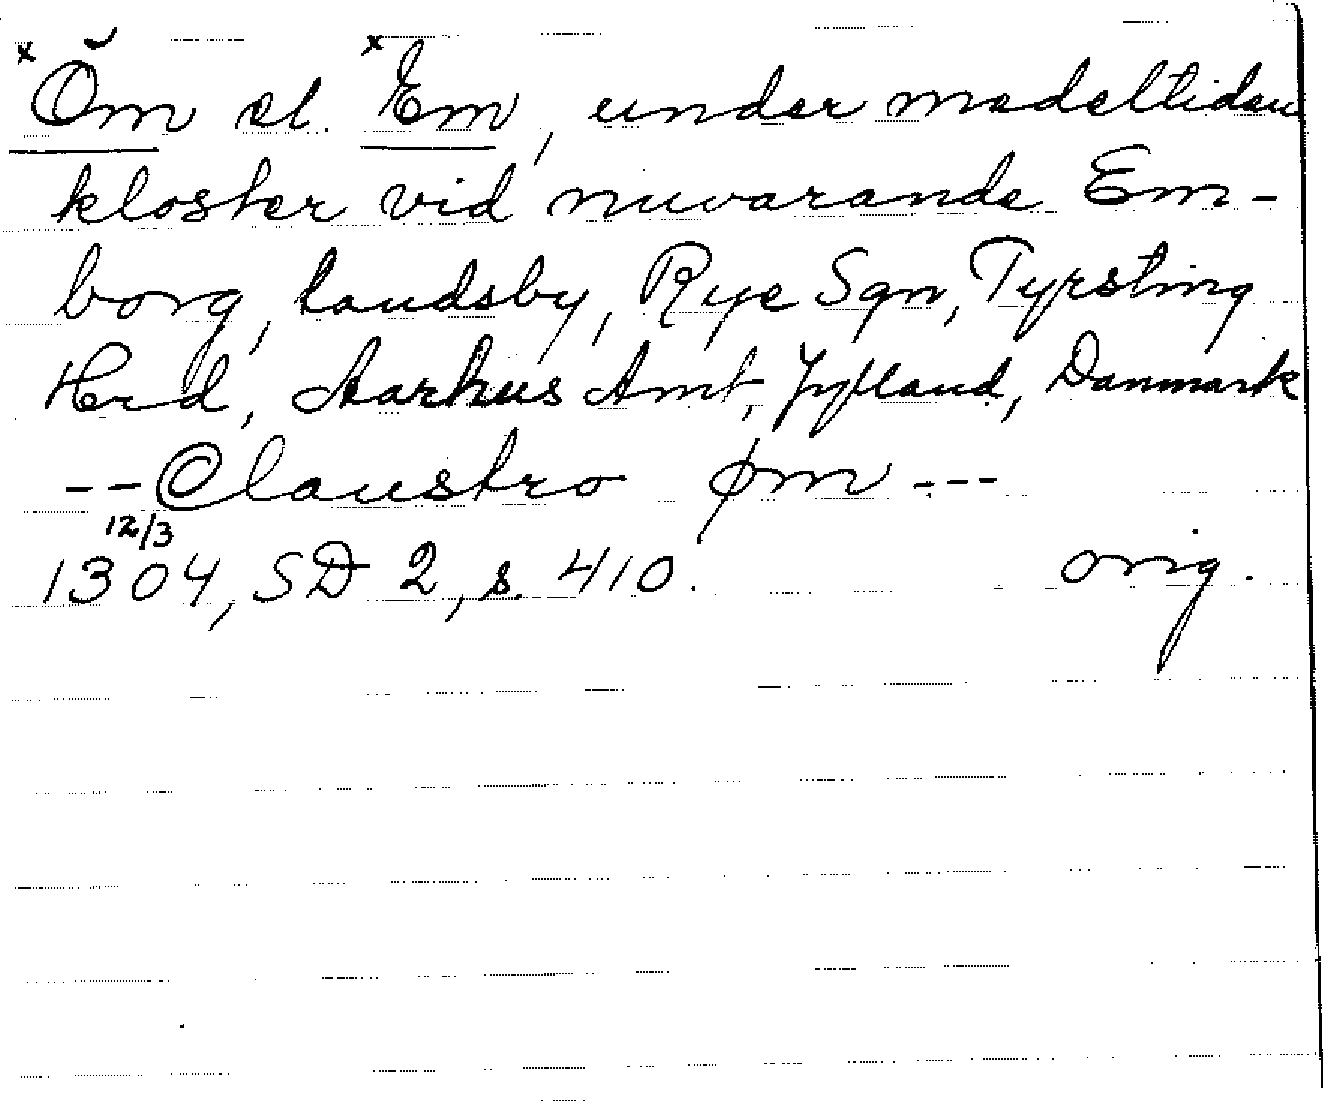 ˣÖm el. ˣEm, under medeltiden
kloster vid nuvarande Em-
borg, landsby, Rye Sgn, Tyrsting
Hrd, Aarhus Amt, Jylland, Danmark
-- Claustro øm ---
12/3
1304, SD 2, s. 410. orig.